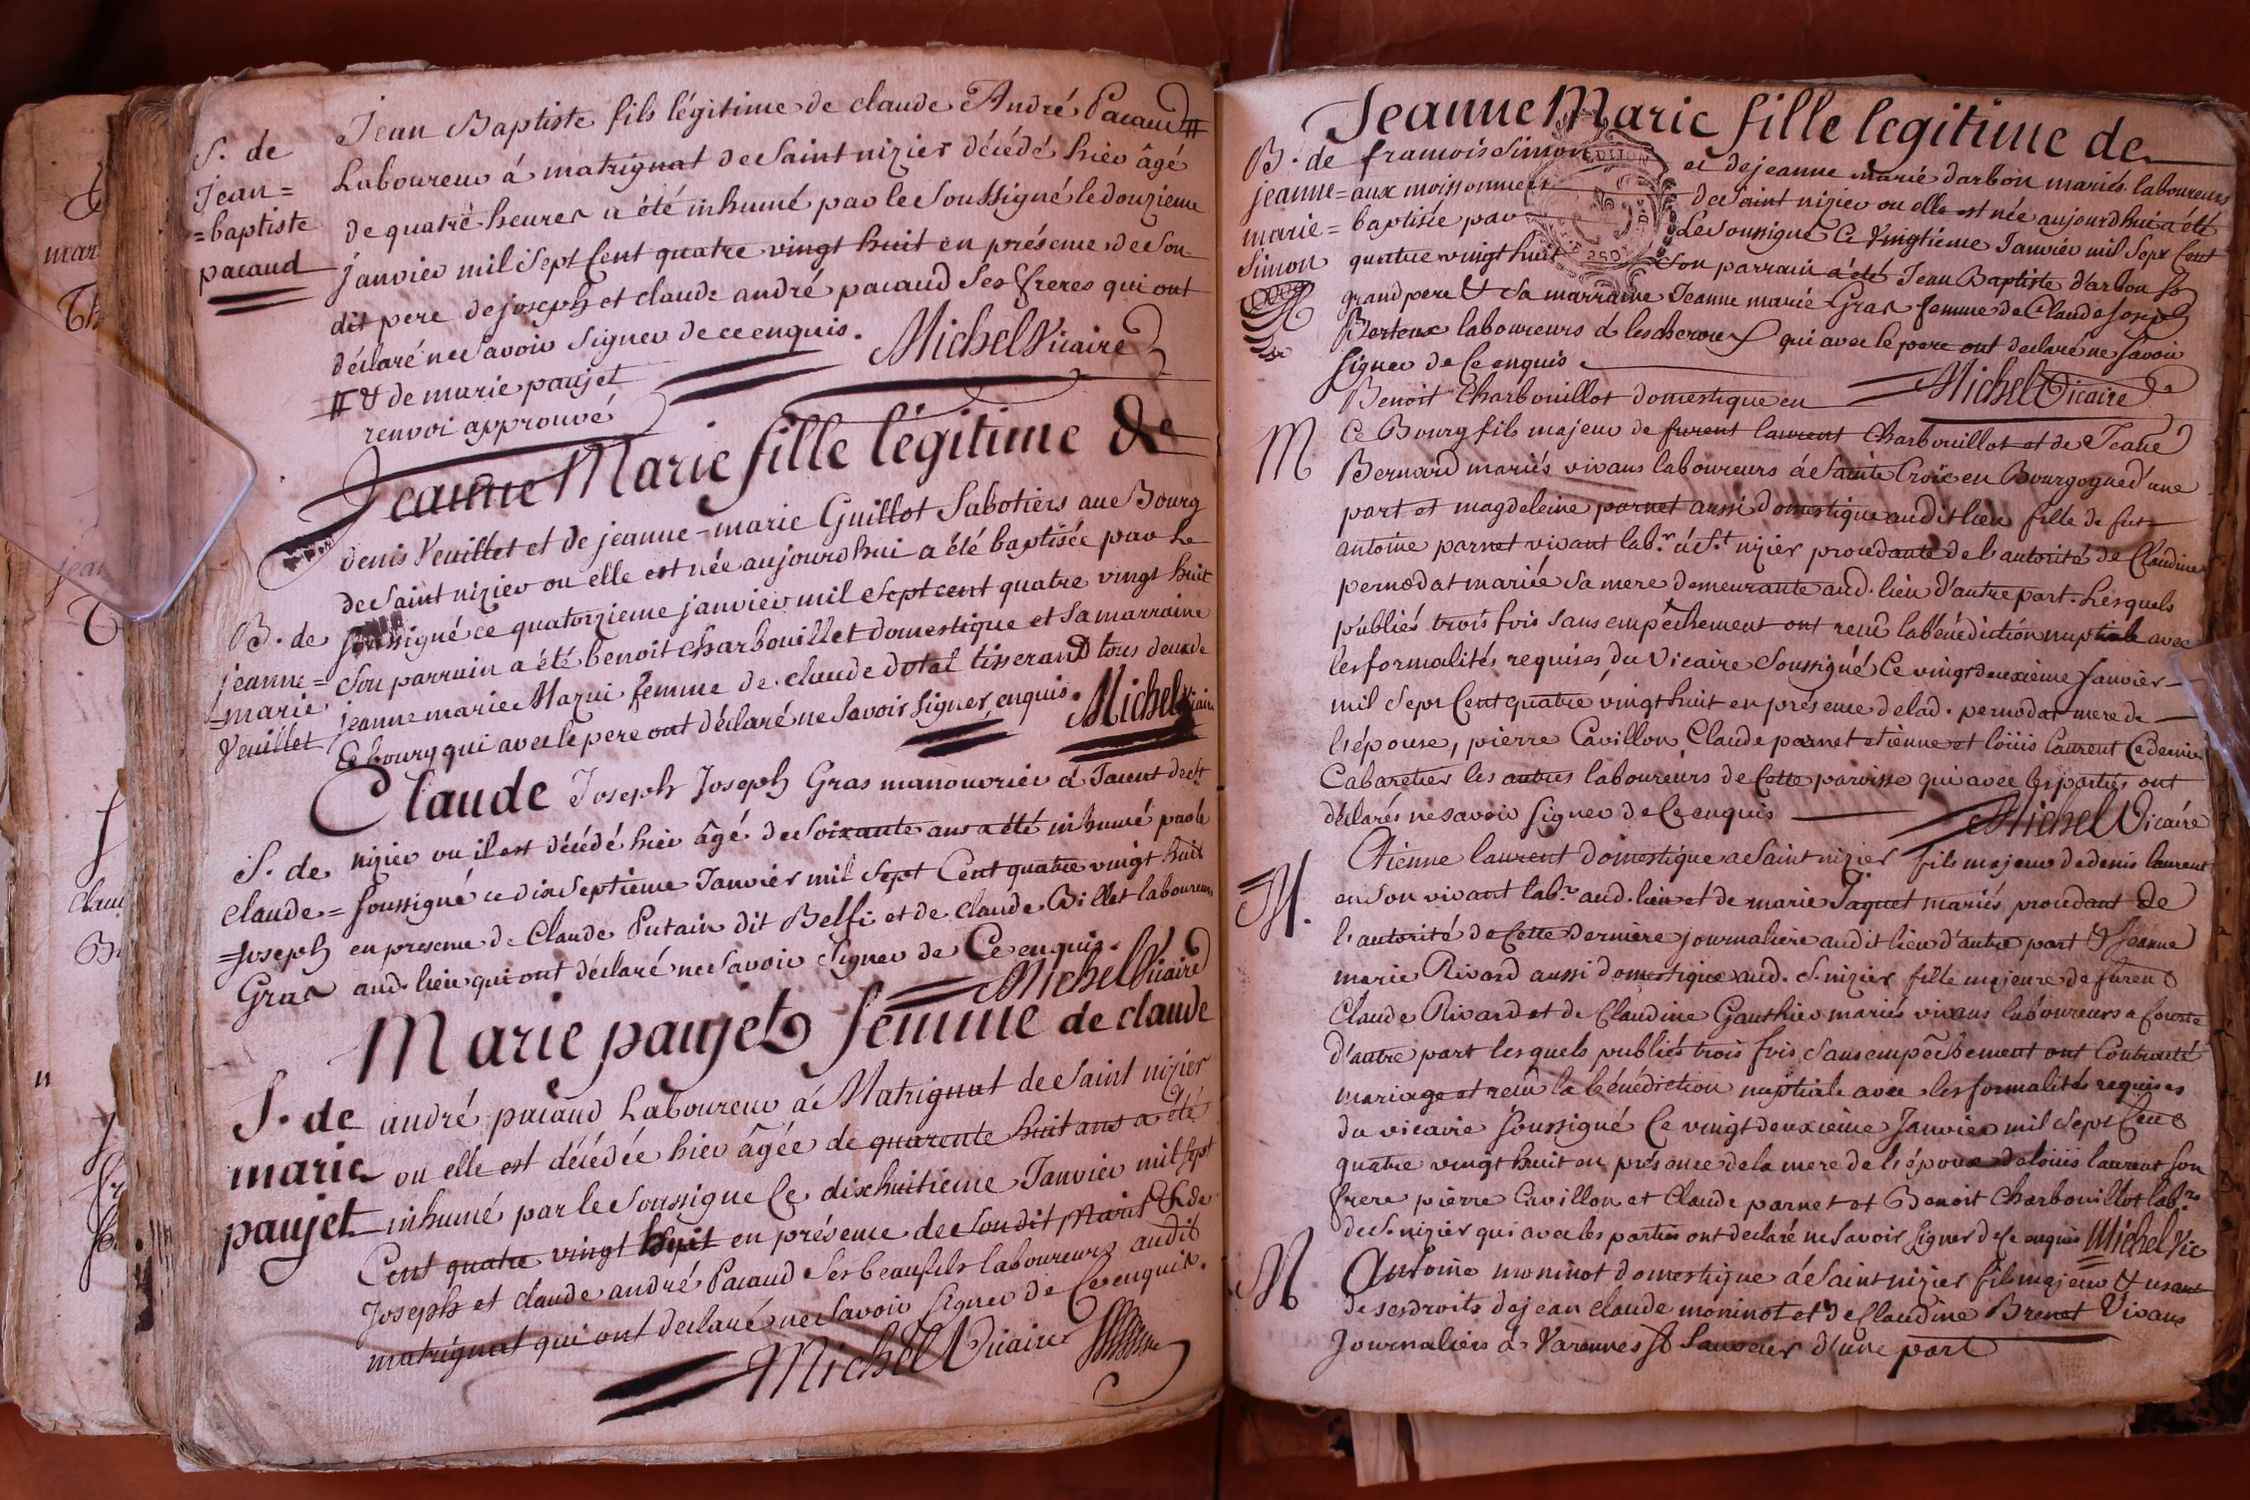 S. de
Jean=
=baptiste
pacaud
Jean Baptiste fils légitime de claude André Pacaud #
Laboureur á matrignat de Saint nizier décédé hier âgé
de quatre heures a été inhumé par le Soussigné le douzieme
janvier mil Sept Cent quatre vingt huit en présence de Son
dit pere de joseph et claude andré pacaud Ses freres qui ont
déclaré ne Savoir Signer de ce enquis. Michel Vicaire
# & de marie paujet
renvoi approuvé
B. de
jeanne=
=marie
Veuillet
Jeanne Marie fille légitime de
denis Veuillet et de jeanne-marie Guillot Sabotiers au Bourg
de Saint nizier ou elle est née aujourdhui a été baptisée par Le
soussigné ce quatorzieme janvier mil Sept cent quatre vingt huit
Son parrain a été benoit charbouillet domestique et Sa marraine
jeanne marie Mazui femme de claude dotal tisserand tous deux de
Ce bourg qui avec le pere ont déclaré ne Savoir Signer enquis. Michel Vicaire
S. de
claude=
=joseph
Gras
Claude Joseph Joseph Gras manouvrier á Tarent de St
nizier ou il est décédé hier âgé de Soixante ans a été inhumé par le
Soussigné ce dix Septieme Janvier mil Sept Cent quatre vingt huit
en presence de Claude Putain dit Belfi et de claude Billet laboureurs
aud. lieu qui ont déclaré ne Savoir Signer de Ce enquis.
Michel Vicaire
S. de
marie
paujet
Marie paujet femme de claude
andré pacaud Laboureur á Matrignat de Saint nizier
ou elle est décédée hier âgée de quarente huit ans a été
inhumé par le Soussigne Ce dixhuitieme Janvier mil Sept
Cent quatre vingt huit en présence de Son dit Mari & de
Joseph et claude andré Pacaud Ses beaufils laboureurs audit
matrignat qui ont declaré ne Savoir Signer de Ce enquis.
Michel Vicaire
B. de
jeanne=
marie=
Simon
Jeanne Marie fille legitime de
francois Simon et de jeanne marie darbon mariés laboureurs
aux moissonniers de Saint nizier ou elle est née aujourdhui a été
baptisée par Le Soussigné Ce Vingtieme Janvier mil Sept Cent
quatre vingt huit Son parrain a été Jean Baptiste darbon So
grand pere & Sa marraine Jeanne marie Gras femme de Claude Joseph
Berteux laboureurs á lescheroux qui avec le pere ont declaré ne Savoir
Signer de Ce enquis
Michel Vicaire
M
Benoit Charbouillot domestique en
Ce Bourg fils majeur de furent laurent Charbouillot et de Jeane
Bernard mariés vivans laboureurs á Sainte Croix en Bourgogne d'une
part et magdeleine parnet aussi domestique audit lieu fille de fut
antoine parnet vivant labr. á St. nizier procedante de l'autorité de Claudine
pernodat mariée Sa mere demeurante aud. lieu d'autre part. Lesquels
publiés trois fois Sans empêchement ont recû la bénédiction nuptiale avec
les formalités requises du Vicaire Soussigné Ce vingt deuxieme Janvier
mil Sept Cent quatre vingt huit en présence de lad. pernodat mere de
l'épouse, pierre Cavillon, Claude parnet etienne et loüis laurent Ce dernier
Cabaretier les autres laboureurs de Cette paroisse qui avec les parties ont
déclarés ne savoir Signer de Ce enquis
Michel Vicaire
M.
Etienne laurent domestique a Saint nizier fils majeur de denis laurent
en Son vivant labr. aud. lieu et de marie Jaquet mariés, procedant de
l'autorité de Cette derniere journaliere audit lieu d'autre part & Jeanne
marie Rivard aussi domestique aud. St. nizier fille majeure de furent
Claude Rivard et de Claudine Gauthier mariés vivans laboureurs a
d'autre part lesquels publiés trois fois Sans empêchement ont Contracté
mariage et recû la bénédiction nuptiale avec les formalités requises
du vicaire Soussigné Ce vingt deuxieme Janvier mil Sept Cent
quatre vingt huit en présence de la mere de l'époux de loüis laurent Son
frere pierre Cavillon et Claude parnet et Benoit Charbouillot labrs.
de St. nizier qui avec les parties ont declaré ne Savoir Signer de Ce enquis Michel Vic
M
Antoine moninot domestique á Saint nizier fils majeur & usant
de ses droits de jean claude moninot et de Claudine Brenet Vivans
Journaliers a Varennes St Sauveur d'une part